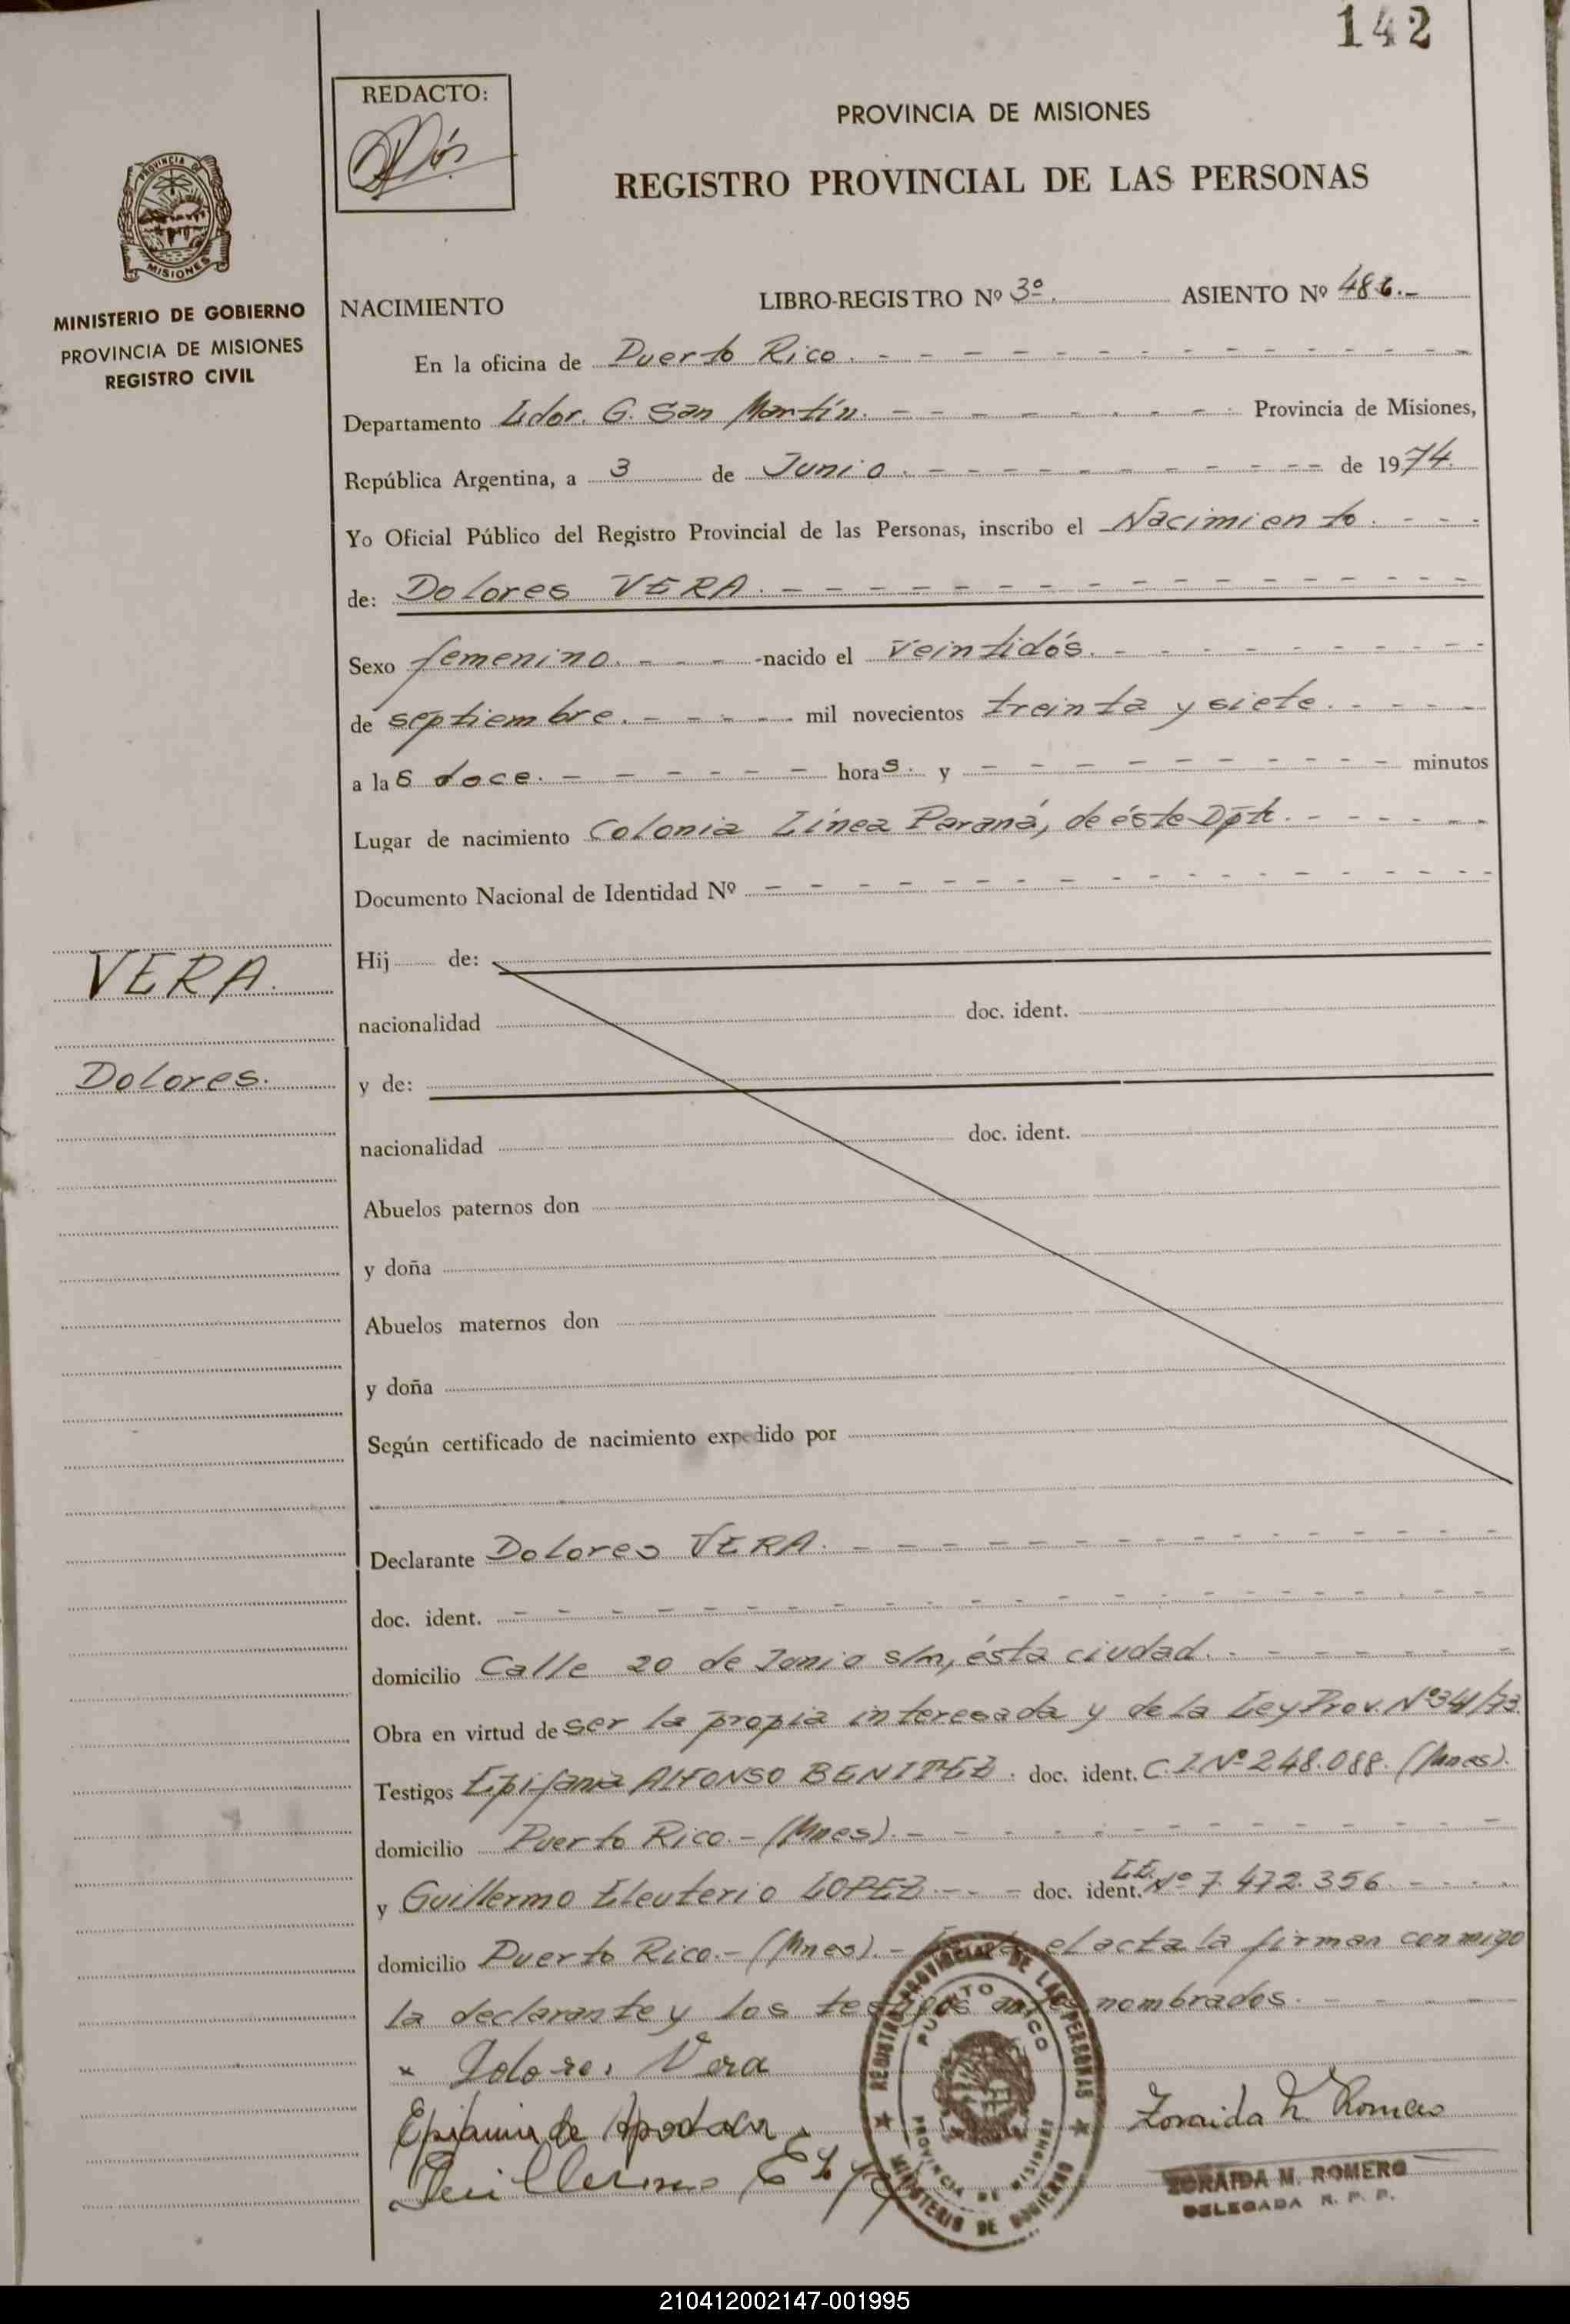 142
REDACTO:
PROVINCIA DE MISIONES
REGISTRO PROVINCIAL DE LAS PERSONAS
PROVINCIA DE
MISIONES
MINISTERIO DE GOBIERNO
PROVINCIA DE MISIONES
REGISTRO CIVIL
NACIMIENTO LIBRO-REGISTRO Nº 3º. ASIENTO Nº 486.-
En la oficina de Puerto Rico. - - - - - - - - - - - - - -
Departamento Ldor. G. San Martín. - - - - - - - - Provincia de Misiones,
República Argentina, a 3 de Junio. - - - - - - - - - - de 1974.
Yo Oficial Público del Registro Provincial de las Personas, inscribo el Nacimiento. - - -
de: Dolores VERA. - - - - - - - - - - - - - - - -
Sexo femenino. - - - -nacido el veintidós. - - - - - - - - -
de septiembre. - - - - mil novecientos treinta y siete. - - - -
a las doce. - - - - - - horas. y - - - - - - - - - - minutos
Lugar de nacimiento Colonia Línea Paraná, de éste Dpto. - - - - -
Documento Nacional de Identidad Nº - - - - - - - - - - - - - - - - -
Hij de:
nacionalidad doc. ident.
y de:
nacionalidad doc. ident.
Abuelos paternos don
y doña
Abuelos maternos don
y doña
Según certificado de nacimiento expedido por
VERA.
Dolores.
Declarante Dolores VERA. - - - - - - - - - - - - - - -
doc. ident. - - - - - - - - - - - - - - - - - - - -
domicilio Calle 20 de Junio s/n, ésta ciudad. - - - - - - -
Obra en virtud de ser la propia interesada y de la Ley Prov. Nº341/73.
Testigos Epifania ALFONSO BENITEZ. doc. ident. C.I.Nº 248.088. (Mnes).
domicilio Puerto Rico.- (Mnes).- - - - - - - - - - - - -
y Guillermo Eleuterio LOPEZ.- - - doc. ident. L.E. Nº 7.472.356. - - - -
domicilio Puerto Rico.- (Mnes).- el acta la firman conmigo
la declarante y los testigos antes nombrados. - - - -
x Dolores Vera
Epifania de Apodaca
Guillermo E.
Zoraida M Romero
ZORAIDA M. ROMERO
DELEGADA R. P. P.
REGISTRO PROVINCIAL DE LAS PERSONAS
PUERTO RICO
PROVINCIA DE MISIONES
MINISTERIO DE GOBIERNO
210412002147-001995